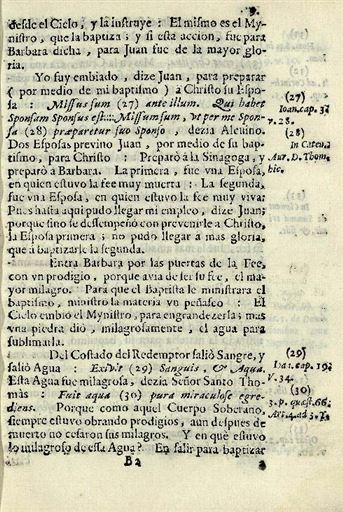 9.
desde el Cielo, y la instruye : El mismo es el My-
nistro, que la baptiza ; y si esta accion, fue para
Barbara dicha, para Juan fue de la mayor glo-
ria.
Yo fuy embiado, dize Juan, para preparar
( por medio de mi baptismo ) à Christo su Espo-
sa : Missus sum (27) ante illum. Qui habet
Sponsam Sponsus est:::: Missum sum, ut per me Spon-
sa (28) præparetur suo Sponso, dezia Alcuino.
Dos Esposas previno Juan, por medio de su bap-
tismo, para Christo : Preparò à la Sinagoga, y
preparò à Barbara. La primera, fue vna Esposa,
en quien estuvo la fee muy muerta : La segunda,
fue vna Esposa, en quien estuvo la fee muy viva:
Pues hasta aqui pudo llegar mi empleo, dize Juan;
porque sino se desempeñò con prevenirle à Christo,
la Esposa primera ; no pudo llegar à mas gloria,
que à baptizarle la segunda.
Entra Barbara por las puertas de la Fee,
con vn prodigio, porque avia de ser su fee, el ma-
yor milagro. Para que el Baptista le ministrara el
baptismo, ministro la materia vn peñasco : El
Cielo embiò el Mynistro, para engrandezerla ; mas
vna piedra diò, milagrosamente, el agua para
sublimarla.
Del Costado del Redemptor saliò Sangre, y
saliò Agua : Exivit (29) Sanguis, & Aqua.
Esta Agua fue milagrosa, dezia Señor Santo Tho-
màs : Fuit aqua (30) pura miraculose egre-
diens. Porque como aquel Cuerpo Soberano,
siempre estuvo obrando prodigios, aun despues de
muerto no cesaron sus milagros. Y en què estuvo
lo milagroso de essa Agua? En salir para baptizar
B2
(27)
Ioan. cap. 3.
v. 28.
(28)
In Catena
Aur. D. Thom.
hic.
(29)
Ioa 1. cap. 19.
V. 34.
(30)
3. p. quæst. 66.
Art. 4. ad. 3.